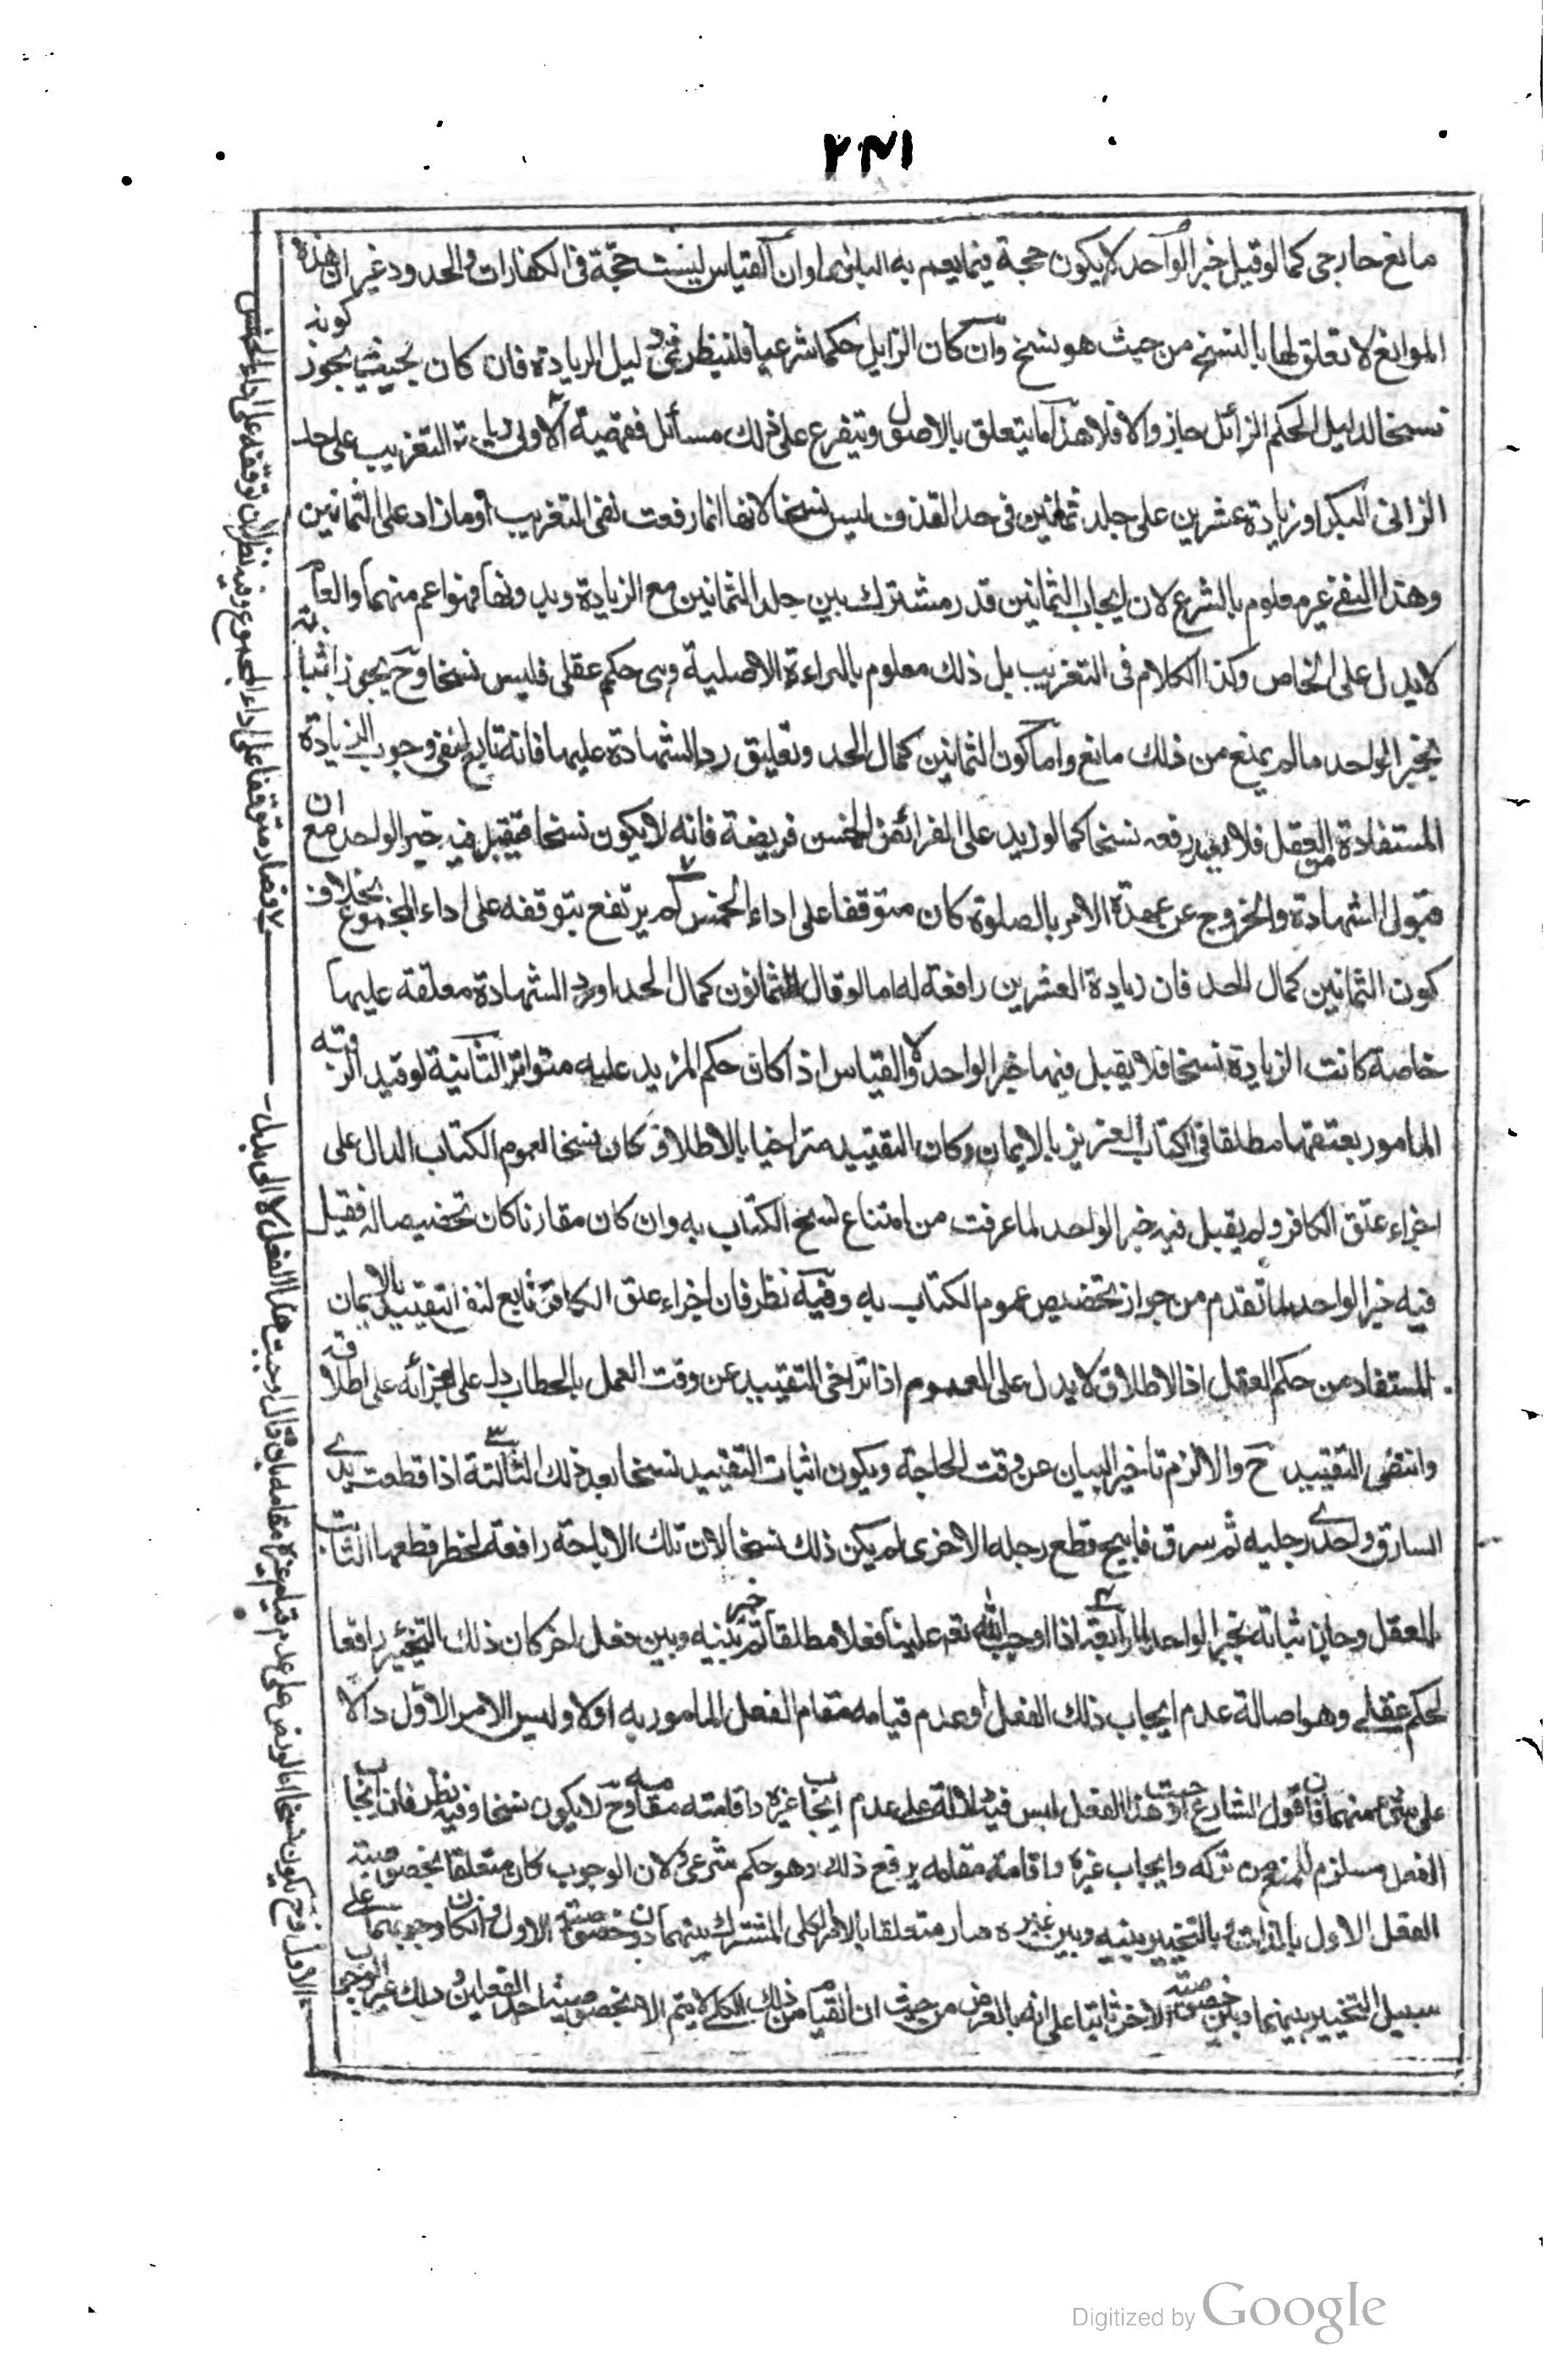 ٢٣١
مانع خارجى كما لو قيل خبر الواحد لا يكون حجة فيما يعم به البلوى او ان القياس ليست حجة فى الكفارات والحدود غير ان هذه
الموانع لا تعلق لها بالنسخ من حيث هو نسخ وان كان الزايل حكما شرعيا فلينظر فى دليل الزيادة فان كان بحيث يجوز كونه
نسخا لدليل الحكم الزائل جاز والا فلا هذا ما يتعلق بالاصول ويتفرع على ذلك مسائل فقهية الاولى زيادة التغريب على جلد
الزانى البكر او زيادة عشرين على جلد ثمانين فى حد القذف ليس نسخا لانها انما رفعت نفى التغريب او ما زاد على الثمانين
وهذا النفى غير معلوم بالشرع لان ايجاب الثمانين قدر مشترك بين جلد الثمانين مع الزيادة وبدونها فهو اعم منهما والعام
لا يدل على الخاص وكذا الكلام فى التغريب بل ذلك معلوم بالبراءة الاصلية وهى حكم عقلى فليس نسخا وح يجوز اثباته
بخبر الواحد ما لم يمنع من ذلك مانع واما كون الثمانين كمال الحد وتعليق رد الشهادة عليها فانه تابع لنفى وجوب الزيادة
المستفادة من العقل فلا يكون رفعه نسخا كما لو زيد على الفرائض الخمس فريضة فانه لا يكون نسخا فيقبل فيه خبر الواحد مع ان
قبول الشهادة والخروج عن عهدة الامر بالصلوة كان متوقفا على اداء الخمس لم يرتفع بتوقفه على اداء المجموع بخلاف
كون الثمانين كمال الحد فان زيادة العشرين رافعة له اما لو قال الثمانون كمال الحد او رد الشهادة معلقة عليها
خاصة كانت الزيادة نسخا فلا يقبل فيها خبر الواحد والقياس اذا كان حكم المزيد عليه متواترا الثانية لو قيد الرقبة
المامور بعتقها مطلقا فى الكتاب العزيز بالايمان وكان التقييد متراخيا بالاطلاق كان نسخا لعموم الكتاب الدال على
اجزاء عتق الكافر ولم يقبل فيه خبر الواحد لما عرفت من امتناع نسخ الكتاب به وان كان مقارنا كان تخصيصا له فقيل
فيه خبر الواحد لما تقدم من جواز تخصيص عموم الكتاب به وفيه نظر فان اجزاء عتق الكافر تابع لنفى التقييد بالايمان
المستفاد من حكم العقل اذ الاطلاق لا يدل على العموم اذا تراخى التقييد عن وقت العمل بالخطاب دل على اجزائه على اطلاقه
وانتفى التقييد ح والا لزم تاخير البيان عن وقت الحاجة ويكون اثبات التقييد نسخا بعد ذلك الثالثة اذا قطعت يد
السارق واحدى رجليه ثم سرق فابيح قطع رجله الاخرى لم يكن ذلك نسخا لان تلك الاباحة رافعة لحظر قطعها الثابت
بالعقل وجاز اثباته بخبر الواحد الرابعة اذا اوجب الله تعم علينا فعلا مطلقا ثم خير بينه وبين فعل اخر كان ذلك التخيير رافعا
لحكم عقلى وهو اصالة عدم ايجاب ذلك الفعل او عدم قيامه مقام الفعل المامور به اولا وليس الامر الاول دالا
على شئ منهما فان قول الشارع اوجبت هذا الفعل ليس فيه دلالة على عدم ايجاب غيره واقامته مقامه وح لا يكون نسخا وفيه نظر فان ايجاب
الفعل مستلزم للمنع من تركه وايجاب غيره واقامته مقامه يرفع ذلك وهو حكم شرعى ولان الوجوب كان متعلقا بخصوصية
الفعل الاول بالذات بالتخيير بينه وبين غيره صار متعلقا بالامر الكلى المشترك بينهما دون خصوصية الاول وان كان وجوبهما على
سبيل التخيير بينهما وبين خصوصية الاخر ثابتا على انه بالعرض من حيث ان القيام من ذلك الكلى لا يتم الا بخصوصية احد الفعلين وذلك غير الوجوب
فصار متوقفا على اداء المجموع وفيه نظر لان توقفه على اداء الخمس
الاول وح يكون نسخا اما لو نص على عدم قيام غيره مقامه بان قال اوجبت هذا الفعل لا الى بدل
Digitized by Google